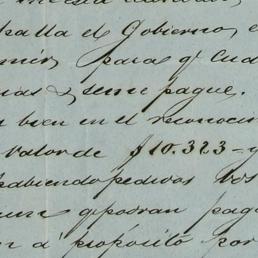 palla el Gobierno, e
para q. Cua
ias & seme pague.
bien en el reconoci
Valor de $10.323-
habiendo pedidos vos
q podran pag
a propósito por